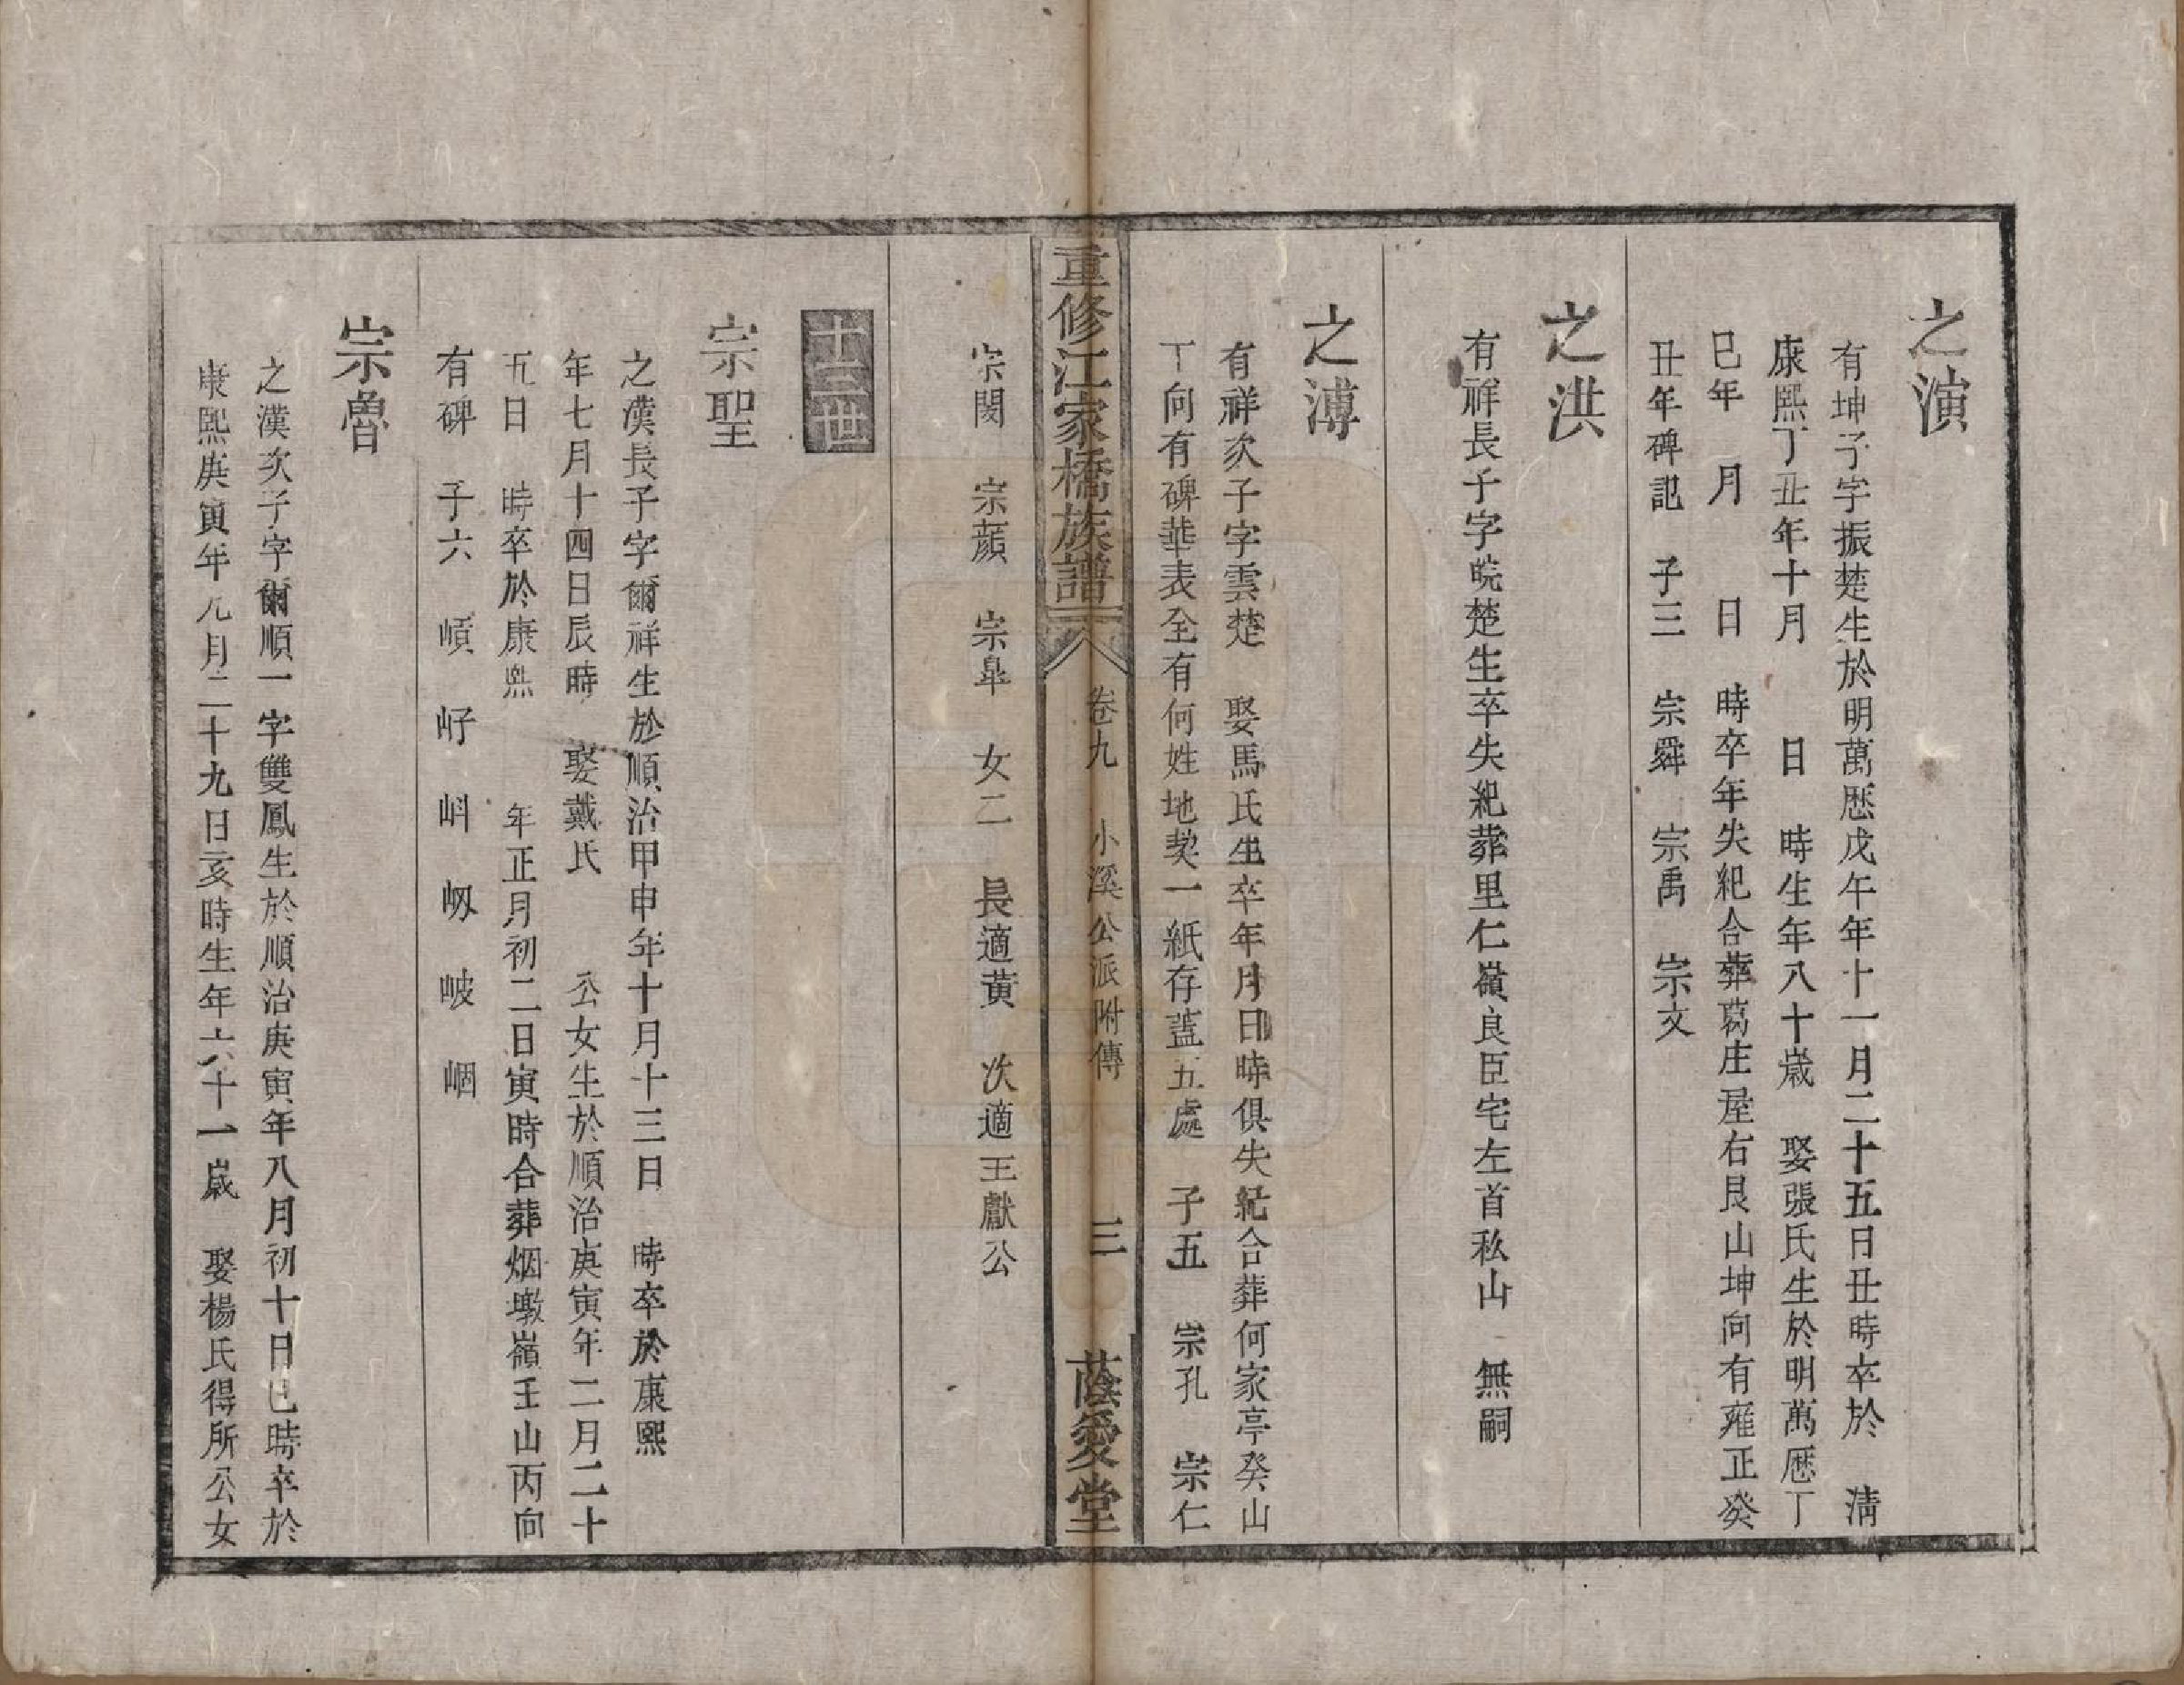 之演
有坤子字振楚生於明萬歷戊午年十一月二十五日丑時卒於　清
康熙丁丑年十月　　日　時生年八十歲　娶張氏生於明萬歷丁
巳年　月　　日　時卒年失紀合葬葛庄屋右艮山坤向有雍正癸
丑年碑記　子三　宗舜　宗禹　宗文
之洪
有祥長子字皖楚生卒失紀葬里仁嶺良臣宅左首私山　無嗣
之溥
有祥次子字雲楚　娶馬氏生卒年月日時俱失紀合葬何家亭癸山
丁向有碑華表全有何姓地契一紙存葢五處　子五　宗孔　宗仁
宗閔　宗顏　宗皐　女二　長適黄　次適王獻公
重修江家橋族譜　卷九　小溪公派附傳　三　蔭愛堂
十三世
宗聖
之漢長子字爾祥生於順治甲申年十月十三日　時卒於康熙
年七月十四日辰時　娶戴氏　　公女生於順治庚寅年二月二十
五日　時卒於康熙　　年正月初二日寅時合葬烟墩嶺壬山丙向
有碑　子六　㟲　㞨　㞳　㞴　岥　崓
宗魯
之漢次子字爾順一字雙鳳生於順治庚寅年八月初十日巳時卒於
康熙庚寅年九月二十九日亥時生年六十一歲　娶楊氏得所公女